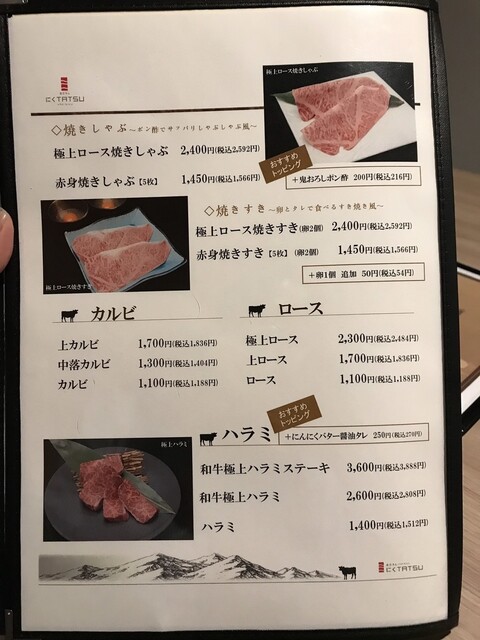 にくTATSU
極上ロース焼きしゃぶ
◇焼きしゃぶ～ポン酢でサッパリしゃぶしゃぶ風～
極上ロース焼きしゃぶ 2,400円(税込2,592円)
赤身焼きしゃぶ【5枚】 1,450円(税込1,566円)
おすすめ
トッピング
＋鬼おろしポン酢 200円(税込216円)
◇焼きすき～卵とタレで食べるすき焼き風～
極上ロース焼きすき(卵2個) 2,400円(税込2,592円)
赤身焼きすき【5枚】(卵2個) 1,450円(税込1,566円)
＋卵1個 追加 50円(税込54円)
極上ロース焼きすき
カルビ
上カルビ 1,700円(税込1,836円)
中落カルビ 1,300円(税込1,404円)
カルビ 1,100円(税込1,188円)
ロース
極上ロース 2,300円(税込2,484円)
上ロース 1,700円(税込1,836円)
ロース 1,100円(税込1,188円)
おすすめ
トッピング
ハラミ ＋にんにくバター醤油タレ 250円(税込270円)
極上ハラミ
和牛極上ハラミステーキ 3,600円(税込3,888円)
和牛極上ハラミ 2,600円(税込2,808円)
ハラミ 1,400円(税込1,512円)
にくTATSU